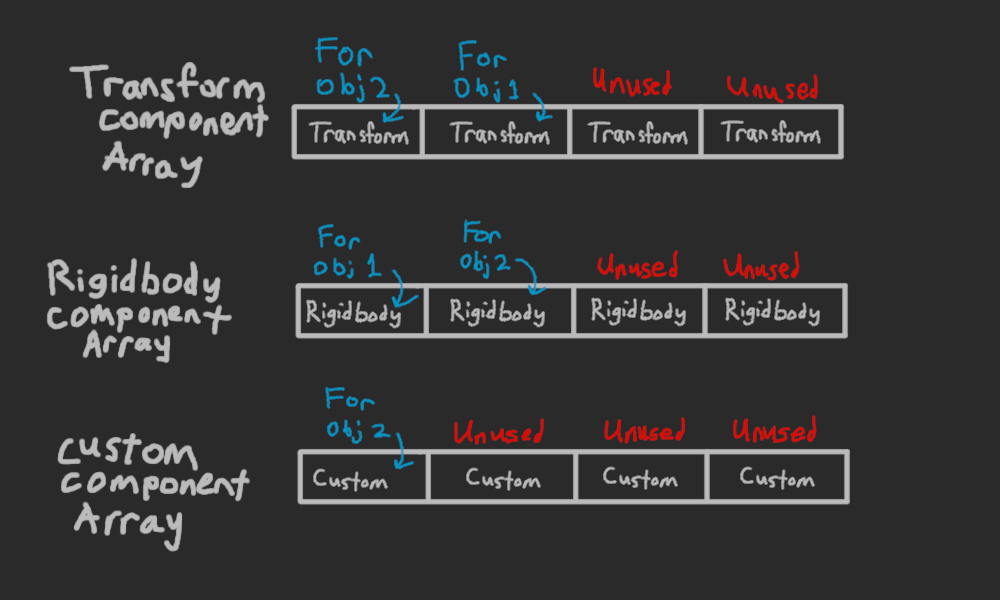 Transform
component
Array
For
obj2
For
Obj1
Unused
Unused
Transform
Transform
Transform
Transform
Rigidbody
component
Array
For
obj 1
For
obj2
Unused
Unused
Rigidbody
Rigidbody
Rigidbody
Rigidbody
custom
component
Array
For
obj 2
Unused
Unused
Unused
Custom
Custom
Custom
Custom